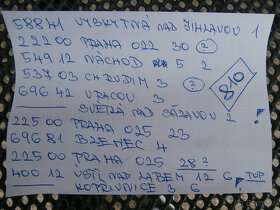 58841 VYSKYTNÁ NAD JIHLAVOU 1
22200 PRAHA 022 30 ?
549 12 NÁCHOD 5 2
537 03 CHRUDIM 3 ?
696 42 VRACOV 3
810
SVĚTLÁ NAD SÁZAVOU 2 !
22500 PRAHA 025 23
69681 BZENEC 4
22500 PRAHA 025 28 ?
400 12 ÚSTÍ NAD LABEM 12 6 TOP
KOPŘIVNICE 3 6